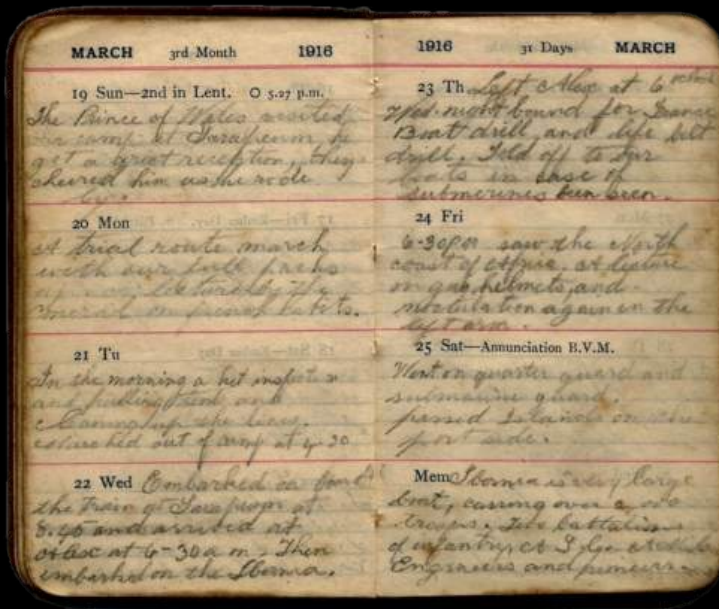 MARCH 3rd Month 1916
19 Sun—2nd in Lent. O 5.27 p.m.
The Prince of Wales visited
our camp at Serapeum he
got a great reception, they
cheered him as he rode
by.
20 Mon
A trial route march
with our full packs
lectured
on french habits.
21 Tu
In the morning a kit inspection
and pulling tent and
cleaning up the lines.
marched out of camp at 4-30
22 Wed Embarked on board
the train at at
8.45 and arrived at
Alex at 6-30 a m. Then
embarked on the Ibernia.
1916 31 Days MARCH
23 Th Left Alex at 6 oclock
Wed. night bound for France
Boat drill and life belt
drill. Told off to our
boats in case of
submerines been seen.
24 Fri
6-30pm saw the North
coast of Africa. A lecture
on gas helmets and
again in the
left arm.
25 Sat—Annunciation B.V.M.
Went on quarter guard and
submarine guard.
passed Islands on the
port side.
Mem Ibernia is very large
boat, carring over
troops. Two battalions
of infantry,
Engineers and pioneers